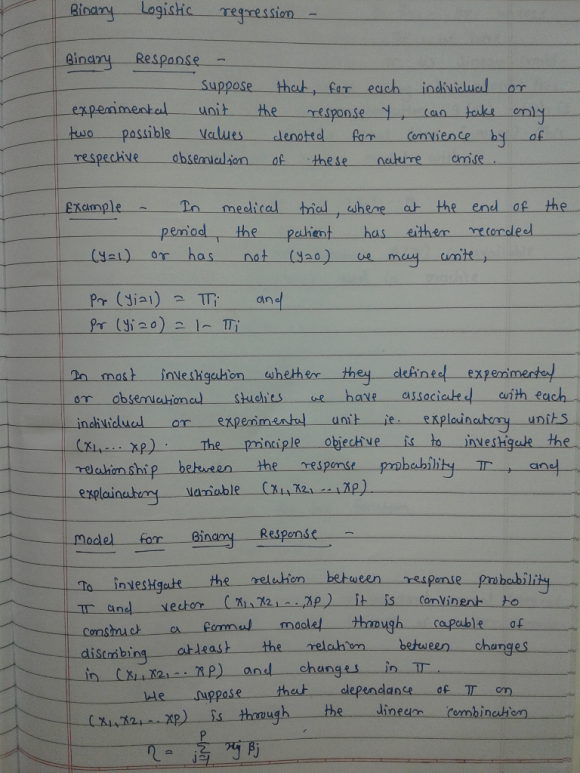 Binary Logistic regression -
Binary Response -
Suppose that, for each individual or
experimental unit the response Y, can take only
two possible values denoted for convience by of
respective observation of these nature arise.
Example - In medical trial, where at the end of the
period, the patient has either recorded
(y=1) or has not (y=0) we may write,
Pr (yi=1) = πi and
Pr (yi=0) = 1- πi
In most investigation whether they defined experimental
or observational studies we have associated with each
individual or experimental unit ie. explainatory units
(x1,... xp). The principle objective is to investigate the
relationship between the response probability π, and
explainatory variable (x1, x2, .., xp)
Model for Binary Response -
To investigate the relation between response probability
π and vector (x1, x2, .., xp) it is convinent to
construct a formal model through capable of
discribing atleast the relation between changes
in (x1, x2, .. xp) and changes in π.
We suppose that dependance of π on
(x1, x2, .. xp) is through the linear combination
η = p Σ j=1 xij βj